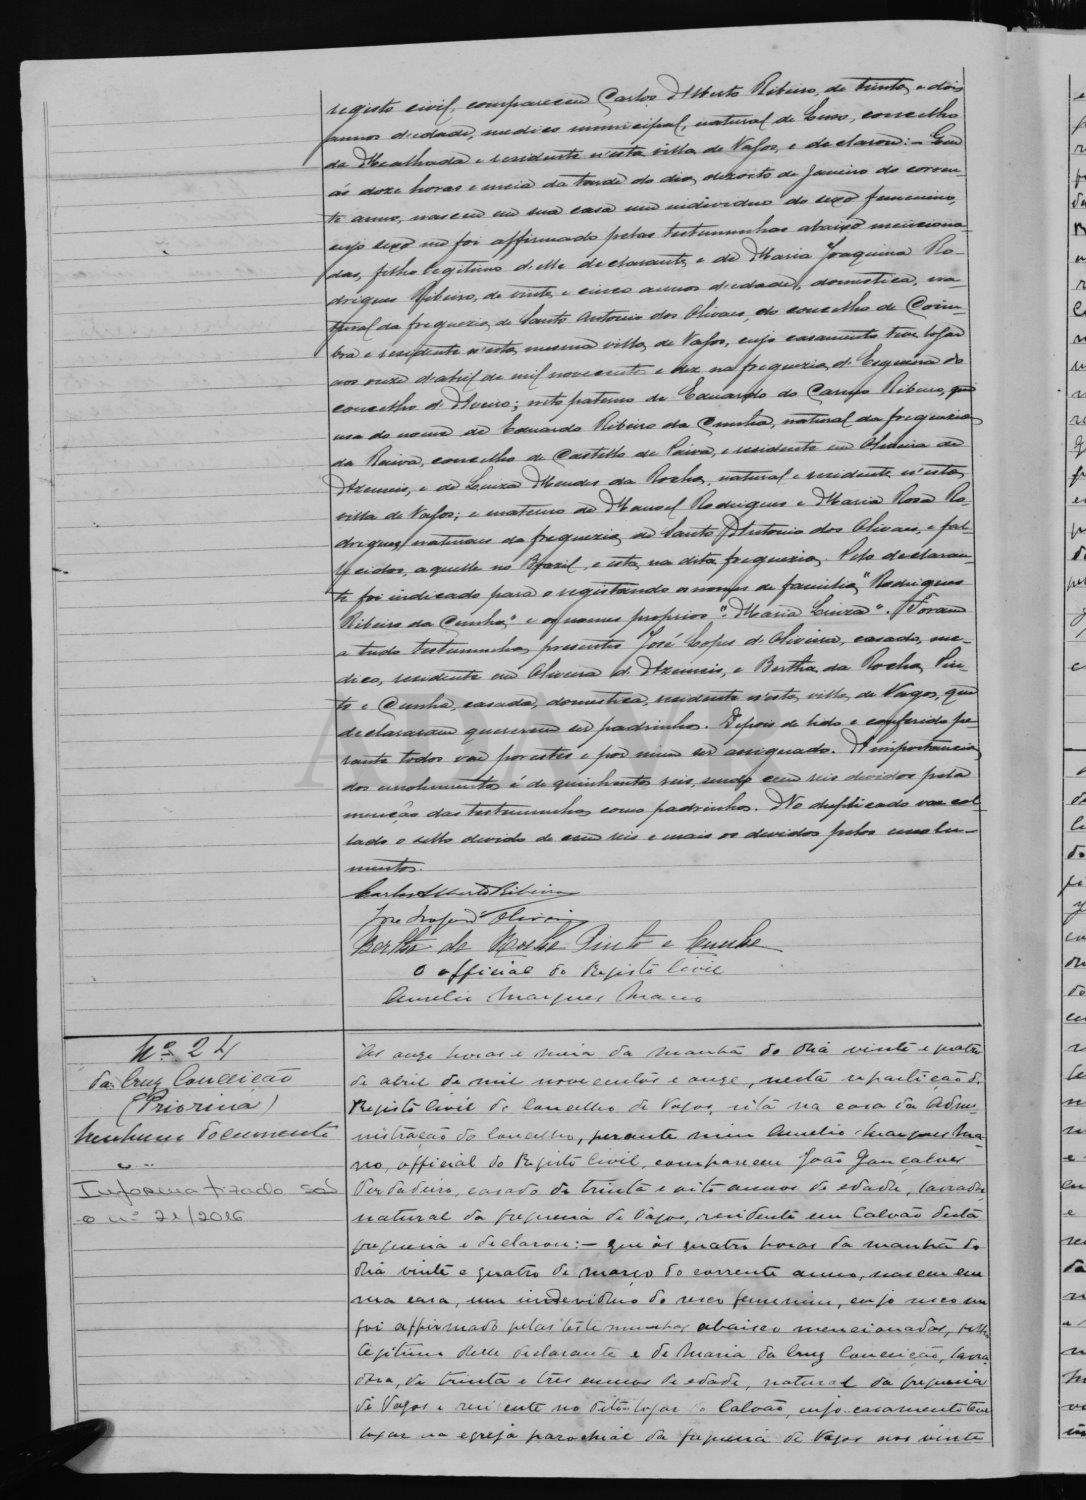 registo civil, compareceu Carlos Alberto Ribeiro, de trinta e dois
annos d'edade, medico municipal, natural de Luso, concelho
da Mealhada e residente n'esta villa de Vagos, e declarou: - Que
ás doze horas e meia da tarde do dia dezoito de Janeiro do corren-
te anno, nasceu em sua casa um individuo do sexo femenino,
cujo sexo me foi affirmado pelas testemunhas abaixo menciona-
das, filho legitimo d'elle declarante, e de Maria Joaquina Ro-
drigues Ribeiro, de vinte e cinco annos d'edade, domestica, na-
tural da freguezia de Santo Antonio dos Olivaes, do concelho de Coim-
bra e residente n'esta mesma villa, de Vagos, cujo casamento teve logar
aos onze d'abril de mil novecentos e dez na freguezia d'Esgueira do
concelho d'Aveiro; neto paterno de Eduardo do Carmo Ribeiro, que
usa do nome de Eduardo Ribeiro da Cunha, natural da freguezia
da Raiva, concelho de Castello de Paiva, e residente em Oliveira de
Azemeis, e de Luiza Mendes da Rocha, natural e residente n'esta
villa de Vagos; e materno de Manoel Rodrigues e Maria Rosa Ro-
drigues, naturaes da freguezia de Santo Antonio dos Olivaes, e fal-
lecidos, aquelle no Brazil, e esta na dita freguezia. Pelo declaran-
te foi indicado para o registando os nomes de familia "Rodrigues
Ribeiro da Cunha" e os nomes proprios "Maria Luiza". Foram
a tudo testemunhas presentes José Lopes d'Oliveira, casado, me-
dico, residente em Oliveira d'Azemeis, e Bertha da Rocha Pin-
to e Cunha, casada, domestica, residente n'esta villa de Vagos, que
declararam quererem ser padrinhos. Depois de lido e conferido pe-
rante todos vae por estes e por mim ser assignado. A importancia
dos emolumentos é de quinhentos reis, sendo cem reis devidos pela
menção das testemunhas como padrinhos. No duplicado vae col-
lado o sello devido de cem reis e mais os devidos pelos emolu-
mentos.
Carlos Alberto Ribeiro
José Lopes d'Oliveira
Bertha da Rocha Pinto e Cunha
O official do Registo Civil
Aurelio Marques Mano
Nº 24
da Cruz Conceição
(Priorina)
Nenhum documento
Informatizado sob
o nº 21/2016
Ás onze horas e meia da manhã do dia vinte e quatro
de abril de mil novecentos e onze, nesta repartição do
Registo Civil do Concelho de Vagos, sita na casa da Admi-
nistração do Concelho, perante mim Aurelio Marques Ma-
no, official do Registo Civil, compareceu João Gonçalves
Verdadeiro, casado de trinta e oito annos de edade, lavrador
natural da freguesia de Vagos, residente em Calvão desta
freguesia e declarou: - que ás quatro horas da manhã do
dia vinte e quatro de março do corrente anno, nasceu em
sua casa, um individuo do sexo femenino, cujo sexo me
foi affirmado pelas testemunhas abaixo mencionadas, filho
legitimo delle declarante e de Maria da Cruz Conceição, lavra-
dora, de trinta e tres annos de edade, natural da freguesia
de Vagos e residente no dito logar de Calvão, cujo casamento teve
logar na egreja parochial da freguesia de Vagos aos vinte